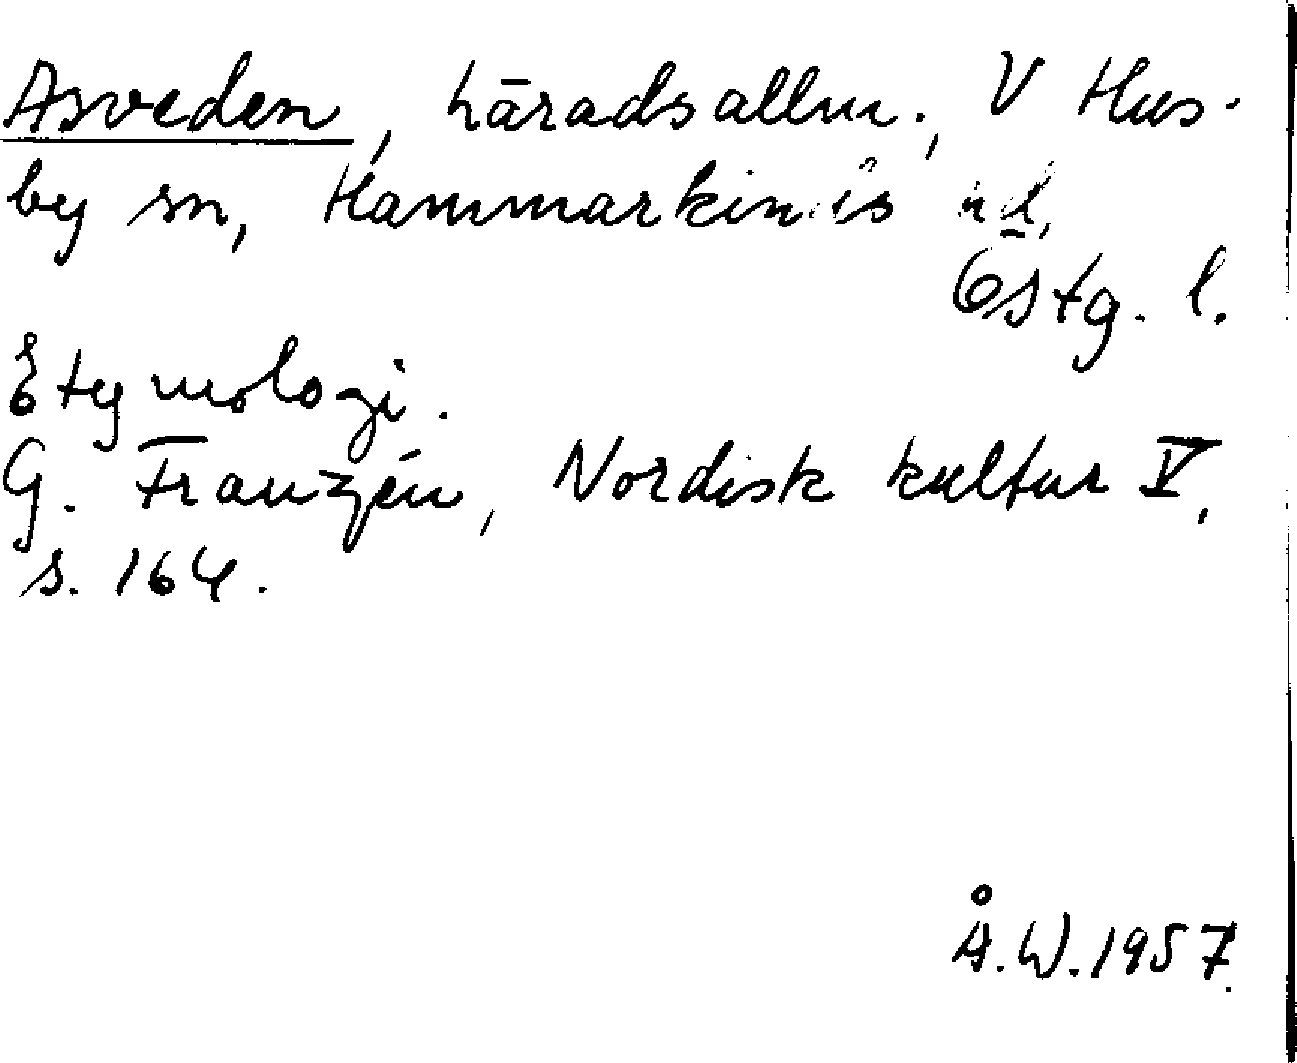 Asveden, häradsallm., V Hus-
by sn, Hammarkinds hd,
Östg. l.
Etymologi.
G. Franzén, Nordisk kultur V,
s. 164.
Å.W.1957.